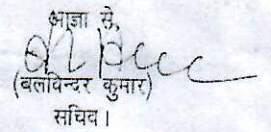 आज्ञा से,
(बलविन्दर कुमार)
सचिव।